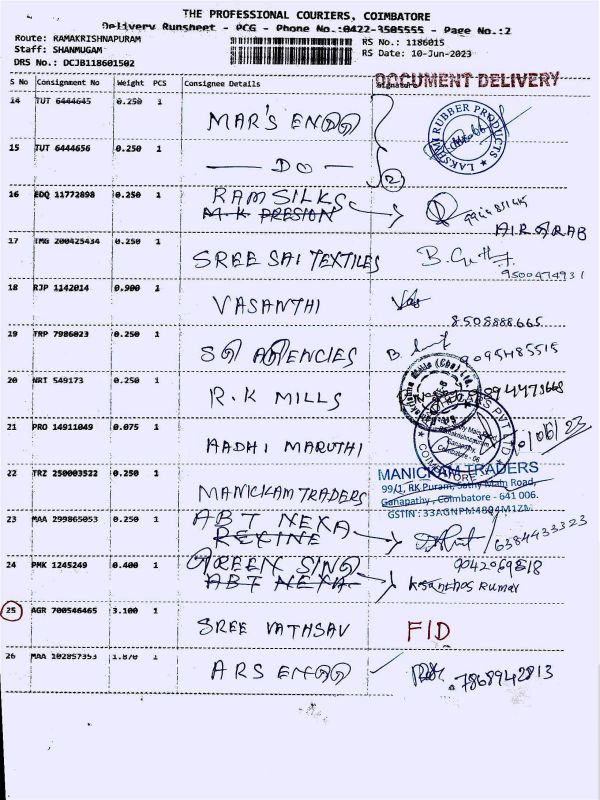 THE PROFESSIONAL COURIERS, COIMBATORE
Delivery Runsheet - PCG - Phone No.:0422-3505555 - Page No.:2
Route: RAMAKRISHNAPURAM
Staff: SHANMUGAM RS No.: 1186015
DRS No.: DCJB118601502 RS Date: 10-Jun-2023
S No Consignment No Weight PCS Consignee Details Signature
DOCUMENT DELIVERY
14 TUT 6444645 0.250 1 MAR'S ENGG
LAKSHMI RUBBER PRODUCTS
15 TUT 6444656 0.250 1 — DO — 2
16 EDQ 11772898 0.250 1 RAM SILKS
M.K PRESION AIR ARAB
17 TMG 200425434 0.250 1 SREE SAI TEXTILES
9500474931
18 RJP 1142014 0.900 1 VASANTHI
8508888665
19 TRP 7986023 0.250 1 SG AGENCIES B. 9095485515
20 NRT 549173 0.250 1 R.K MILLS
21 PRO 14911049 0.075 1 AADHI MARUTHI
COIMBATORE
22 TRZ 250003522 0.250 1 MANICKAM TRADERS
MANICKAM TRADERS
99/1, RK Puram, Sathy Main Road,
Ganapathy, Coimbatore - 641 006.
GSTIN : 33AGNPM4804M1ZA
23 MAA 299865053 0.250 1 ABT NEXA
REXINE 6384433323
24 PMK 1245249 0.400 1 GREEN SING
ABT NEXA
25 AGR 700546465 3.100 1 SREE VATHSAV FID
26 MAA 102857353 1.870 1 ARS ENGG 7868942813